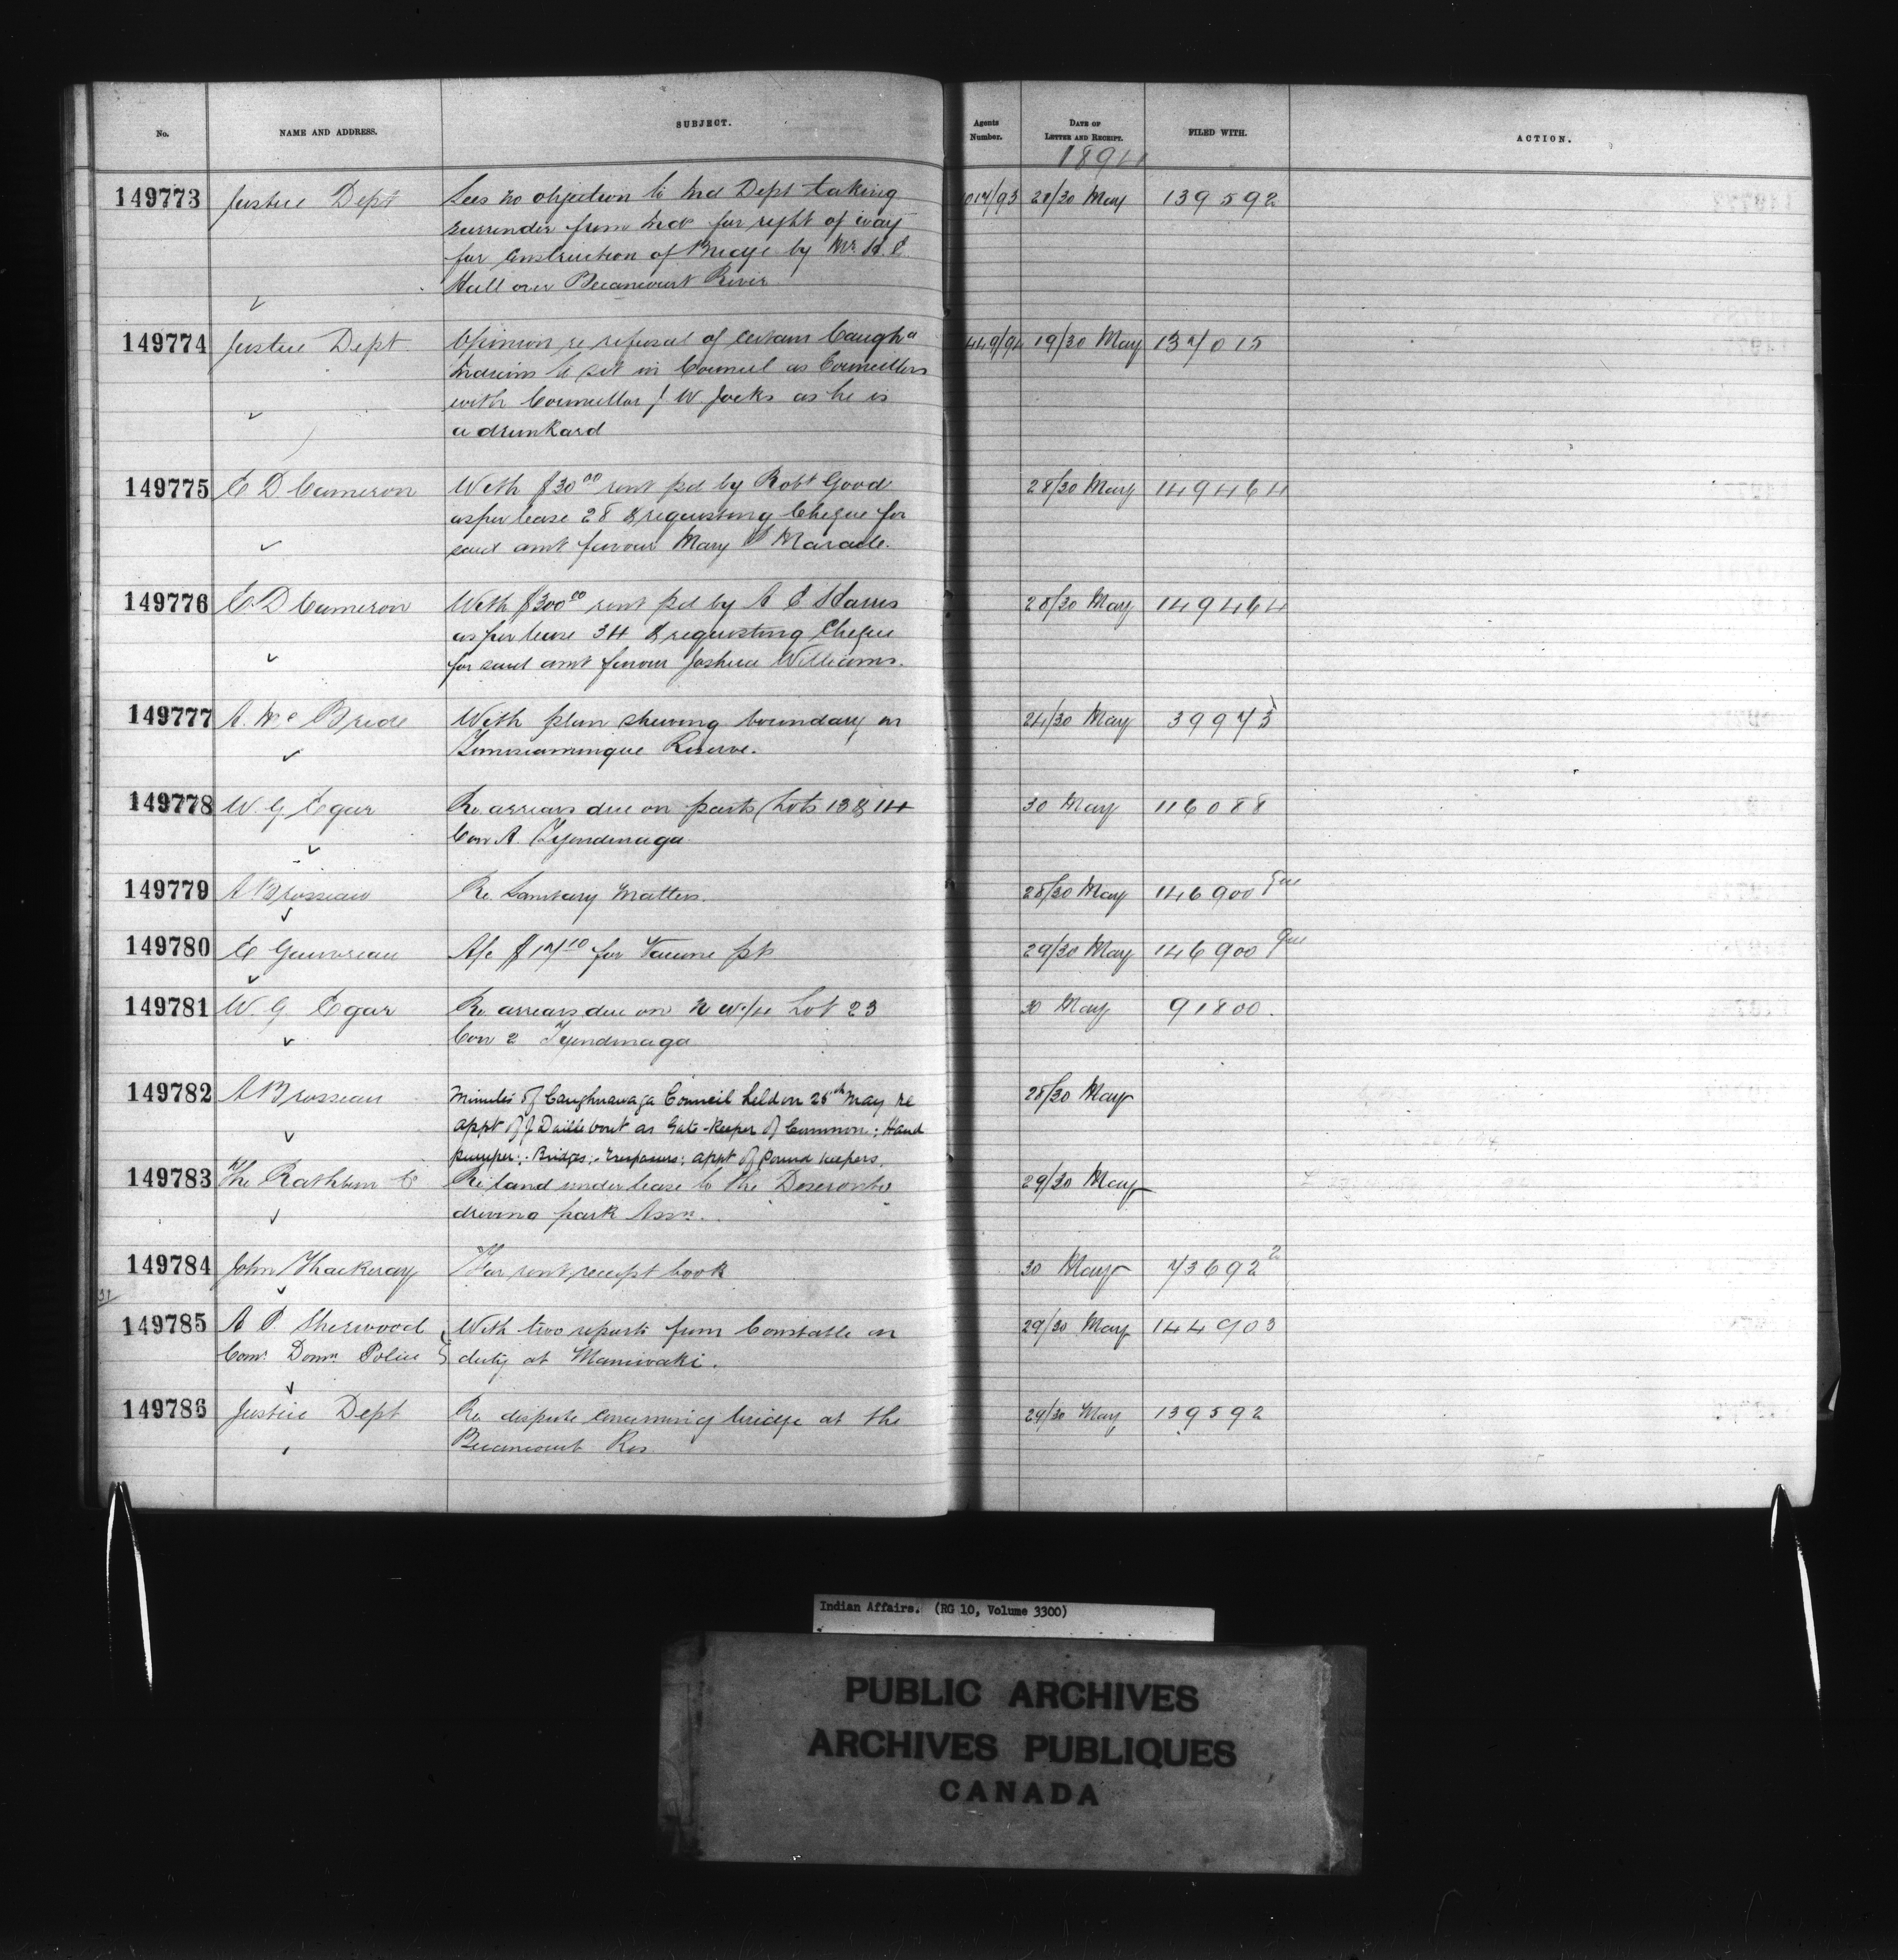 No. NAME AND ADDRESS. SUBJECT. Agents Number. DATE OF LETTER AND RECEIPT. FILED WITH. ACTION.
1894
149773 Justice Dept Sees no objection to Ind Dept taking 1017/93 28/30 May 139592
surrender from Inds for right of way
for construction of Bridge by Mr H. C.
Hall over Becancourt River
149774 Justice Dept Opinion re refusal of certain Caugha 449/94 19/30 May 137015
Indians to sit in Council as Councillors
with Councillor J W. Jocks as he is
a drunkard
149775 E D Cameron With $30 00 rent pd by Robt Good 28/30 May 149464
as per lease 28 & requesting Cheque for
said amt favour Mary Maracle.
149776 E. D Cameron With $300 00 rent pd by A C Harris 28/30 May 149464
as per lease 34 & requesting Cheque
for said amt favour Joshua Williams.
149777 A. Mc Bride With plan shewing boundary on 24/30 May 39973
Temiscamingue Reserve.
149778 W. G Egar Re arrears due on parts Lots 13 & 14 30 May 116088
Con A. Tyendinaga
149779 A Brosseau Re Sanitary Matters. 28/30 May 146900 Que
149780 C Gauvreau A/c $17 10 for Vaccine pts 29/30 May 146900 Que
149781 W. G Egar Re arrears due on N W 1/4 Lot 23 30 May 91800.
Con 2 Tyendinaga
149782 A Brosseau Minutes of Caughnawaga Council held on 25th May re 28/30 May
appt of J Dailleboust as Gate-Keeper of Common; Hand
pumper; Bridges; Trespassers; appt of Pound keepers.
149783 The Rathbun Co Re land under lease to the Deseronto 29/30 May
driving park Assn.
149784 John Thackeray For rent receipt book 30 May 73692 2
31/
149785 A P. Sherwood With two reports from Constable on 29/30 May 144903
Comr Domn Police duty at Maniwaki.
149786 Justice Dept Re dispute concerning bridge at the 29/30 May 139592
Becancourt Res
Indian Affairs. (RG 10, Volume 3300)
PUBLIC ARCHIVES
ARCHIVES PUBLIQUES
CANADA